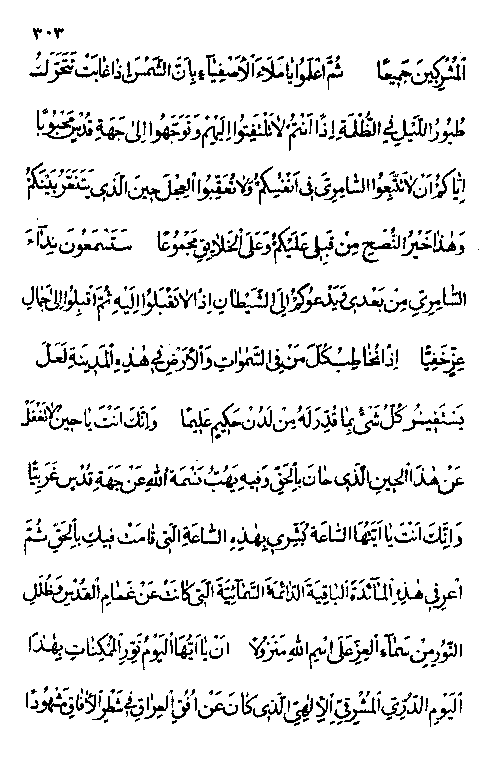 ٣٠٣
المشركين جميعا ثم اعلموا يا ملاء الأصفياء بان الشمس اذا غابت تتحرك
طيور الليل في الظلمة اذا انتم لا تلتفتوا اليهم وتوجهوا الى جهة قدس محبوبا
اياكم ان لا تتبعوا السامري في انفسكم ولا تعقبوا العجل حين الذي يتنعر بينكم
وهذا خير النصح من قبلي عليكم وعلى الخلايق مجموعا ستسمعون نداء
السامري من بعدي ويدعوكم الى الشيطان اذا لا تقبلوا اليه ثم اقبلوا الى جمال
عز خفيا اذا نخاطب كل من في السموات والأرض في هذه المدينة لعل
يستفيئن كل شئ بما قدر له من لدن حكيم عليما وانك انت يا حين لا تغفل
عن هذا الحين الذي حان بالحق وفيه يهب نسمة الله عن جهة قدس غربيا
وانك انت يا ايتها الساعة بشري بهذه الساعة التي قامت فيك بالحق ثم
اعرفي هذه المآئدة الباقية الدائمة السمائية التي كانت عن غمام القدس وظلل
النور من سماء العز على اسم الله منزولا ان يا ايها اليوم نور الممكنات بهذا
اليوم الدري المشرقي الالهي الذي كان عن افق العراق في شطر الآفاق مشهودا